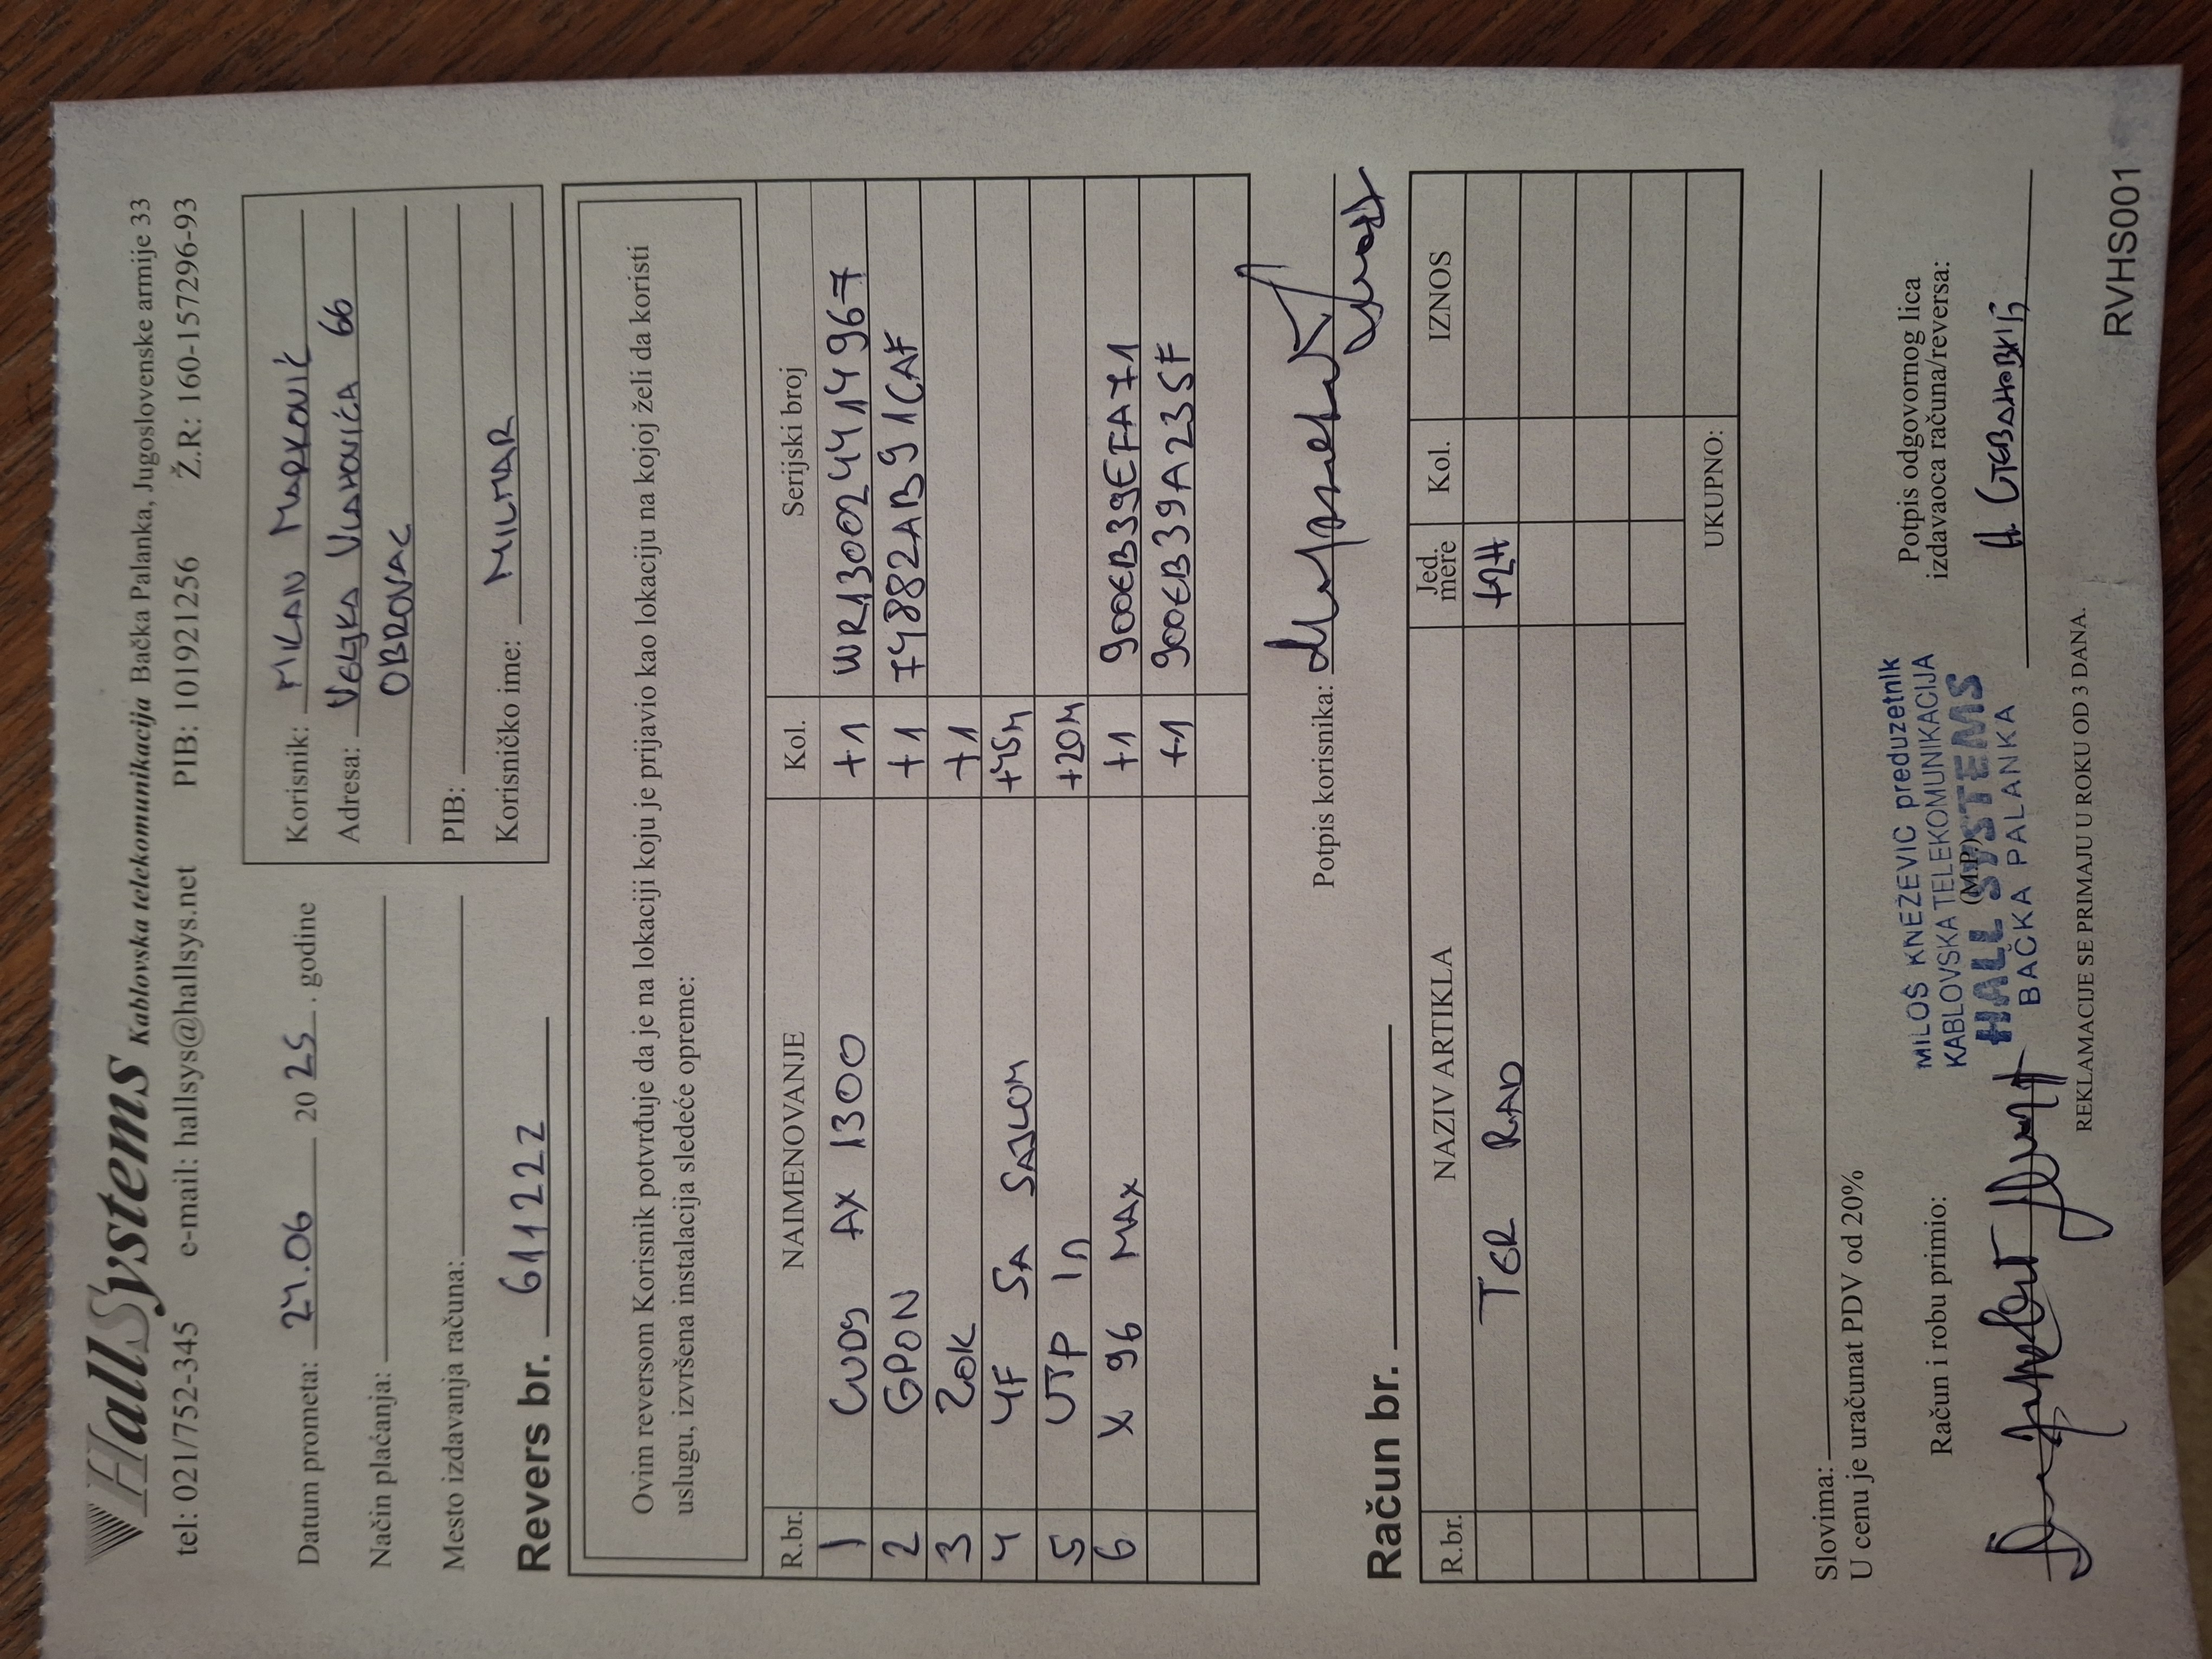 HallSystems Kablovska telekomunikacija Bačka Palanka, Jugoslovenske armije 33
tel: 021/752-345 e-mail: hallsys@hallsys.net PIB: 101921256 Ž.R: 160-157296-93
Datum prometa: 24.06 2025. godine
Način plaćanja:
Mesto izdavanja računa:
Korisnik: MILAN MARKOVIĆ
Adresa: VELJKA VLAHOVIĆA 66
OBROVAC
PIB:
Korisničko ime: MILMAR
Revers br. 611222
Ovim reversom Korisnik potvrđuje da je na lokaciji koju je prijavio kao lokaciju na kojoj želi da koristi
uslugu, izvršena instalacija sledeće opreme:
R.br. NAIMENOVANJE Kol. Serijski broj
1 CUDY AX 1300 +1 WR13002441496 7
2 GPON +1 74882AB91CAF
3 ZOK +1
4 4F SA SAJLOM +45M
5 UTP In +20M
6 X 96 MAX +1 900EB39EFA71
+1 900EB39A235F
Potpis korisnika:
Račun br.
R.br. NAZIV ARTIKLA Jed. mere Kol. IZNOS
TER RAD +2H
UKUPNO:
Slovima:
U cenu je uračunat PDV od 20%
Račun i robu primio:
MILOŠ KNEŽEVIĆ preduzetnik
KABLOVSKA TELEKOMUNIKACIJA
HALL SYSTEMS
BAČKA PALANKA
(M.P.)
Potpis odgovornog lica
izdavaoca računa/reversa:
REKLAMACIJE SE PRIMAJU U ROKU OD 3 DANA.
RVHS001